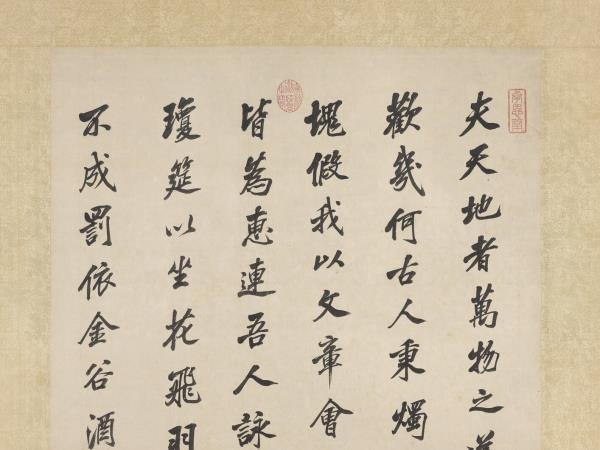 夫天地者萬物之
歡幾何古人秉燭
塊假我以文章會
皆為惠連吾人詠
瓊筵以坐花飛羽
不成罰依金谷酒